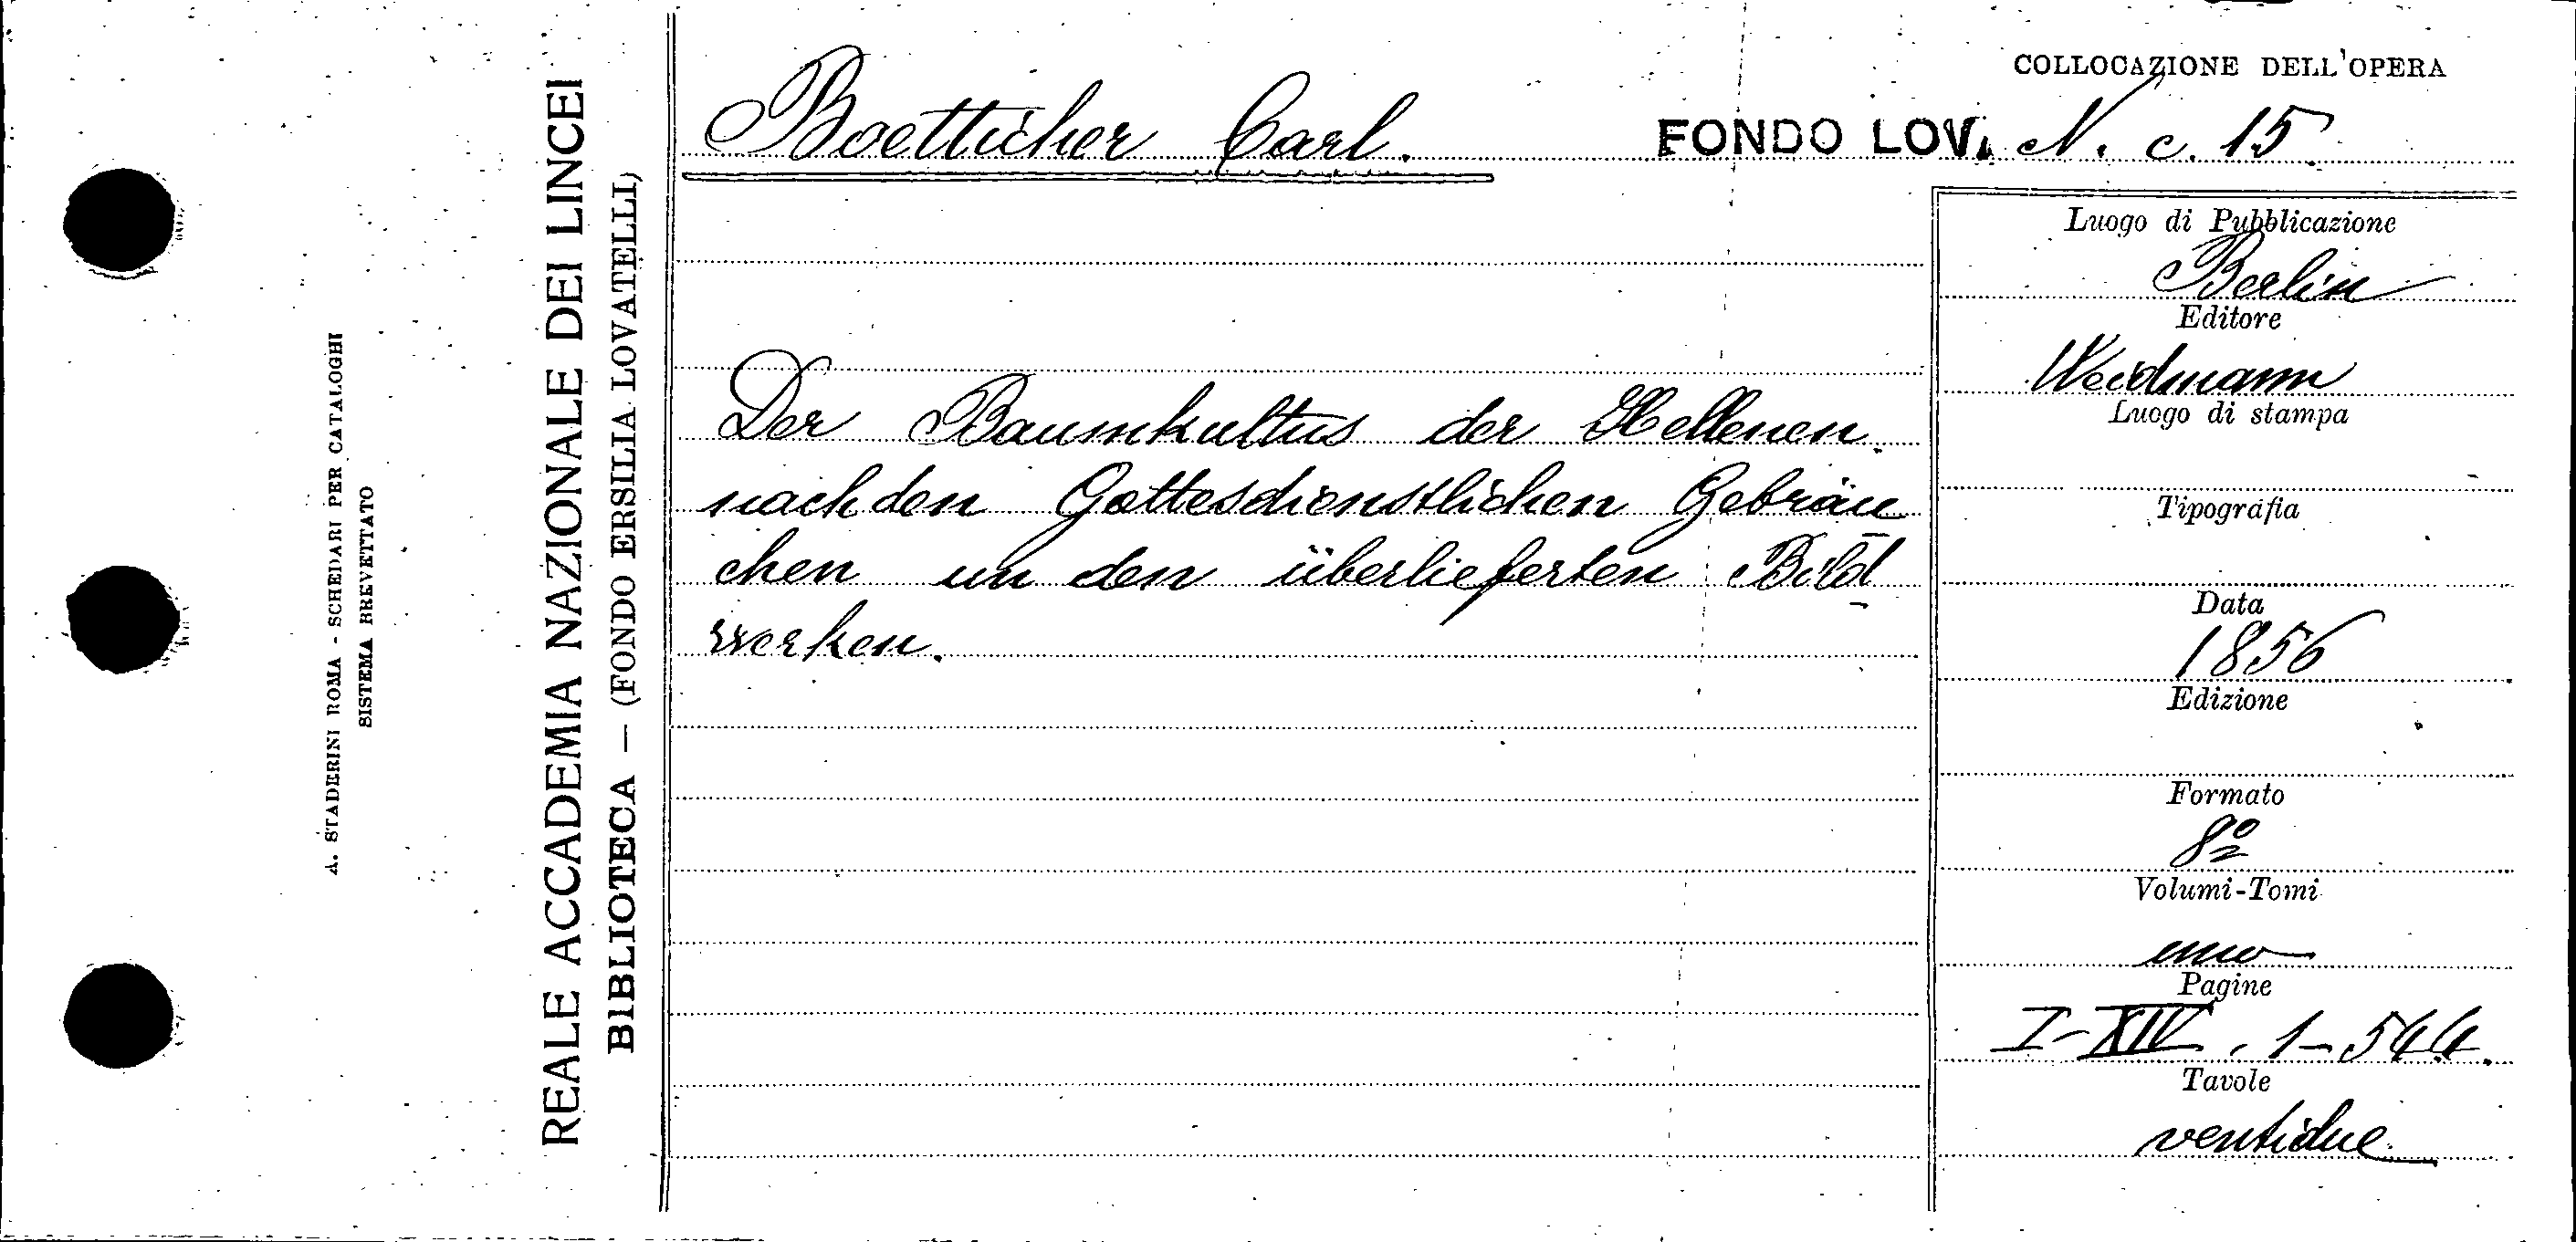 A. STADERINI ROMA - SCHEDARI PER CATALOGHI
SISTEMA BREVETTATO
REALE ACCADEMIA NAZIONALE DEI LINCEI
BIBLIOTECA — (FONDO ERSILIA LOVATELLI)
COLLOCAZIONE DELL'OPERA
Boetticher Carl. FONDO LOV. N. c. 15
Der Baumkultus der Hellenen
nach den Gottesdienstlichen Gebräu
chen un den überlieferten Bild
werken.
Luogo di Pubblicazione
Berlin
Editore
Weidmann
Luogo di stampa
Tipografia
Data
1856
Edizione
Formato
8º
Volumi-Tomi
uno
Pagine
I-XIV, 1-544.
Tavole
ventidue